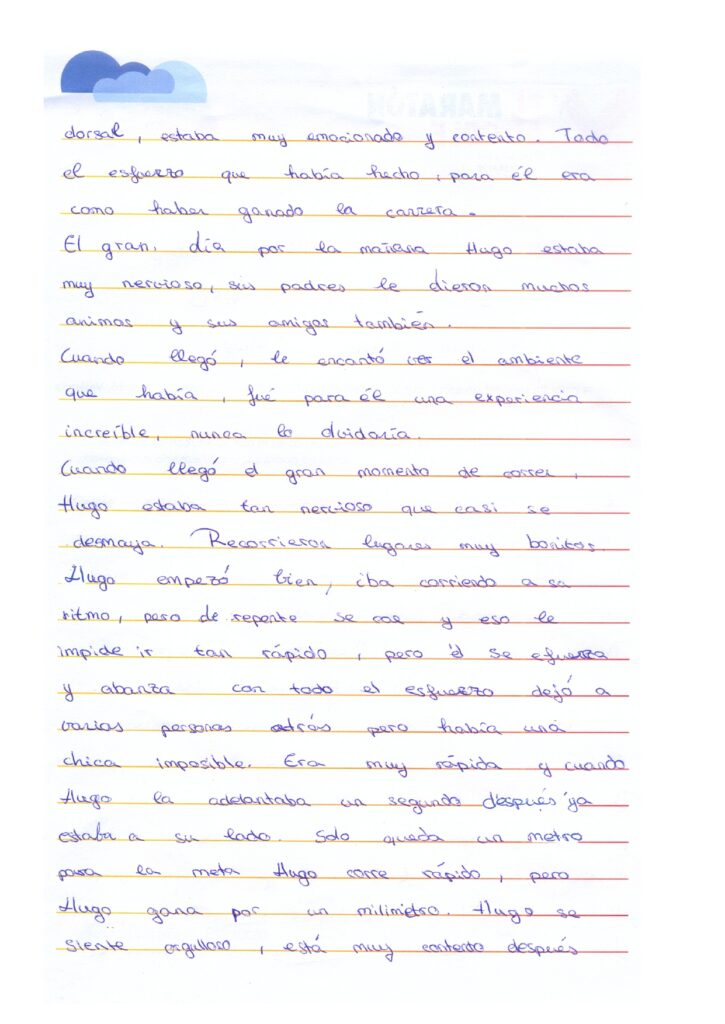 dorsal, estaba muy emocionado y contento. Todo
el esfuerzo que había hecho, para él era
como haber ganado la carrera.
El gran. día por la mañana Hugo estaba
muy nervioso, sus padres le dieron muchos
animos y sus amigos también.
Cuando llegó, le encantó ver el ambiente
que había, fué para él una experiencia
increíble, nunca lo olvidaría.
Cuando llegó el gran momento de correr,
Hugo estaba tan nervioso que casi se
desmaya. Recorrieron lugares muy bonitos.
Hugo empezó bien, iba corriendo a su
ritmo, pero de repente se cae y eso le
impide ir tan rápido, pero él se esfuerza
y abanza con todo el esfuerzo dejó a
varias personas atrás pero había una
chica imposible. Era muy rápida y cuando
Hugo la adelantaba un segundo después ya
estaba a su lado. Solo queda un metro
para la meta Hugo corre rápido, pero
Hugo gana por un milimetro. Hugo se
siente orgulloso, está muy contento después